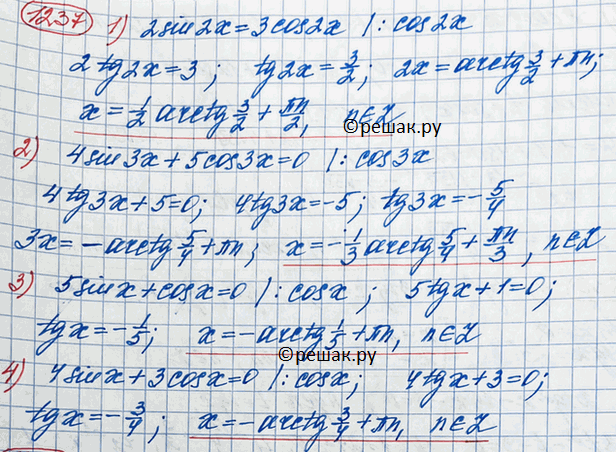 1237 1) 2sin2x=3cos2x |:cos2x
2tg2x=3; tg2x=3/2; 2x=arctg3/2+πn;
x=1/2 arctg3/2+πn/2, n∈Z
©решак.ру
2) 4sin3x+5cos3x=0 |:cos3x
4tg3x+5=0; 4tg3x=-5; tg3x=-5/4
3x=-arctg5/4+πn; x=-1/3 arctg5/4+πn/3, n∈Z
3) 5sinx+cosx=0 |:cosx; 5tgx+1=0;
tgx=-1/5; x=-arctg1/5+πn, n∈Z
©решак.ру
4) 4sinx+3cosx=0 |:cosx; 4tgx+3=0;
tgx=-3/4; x=-arctg3/4+πn, n∈Z